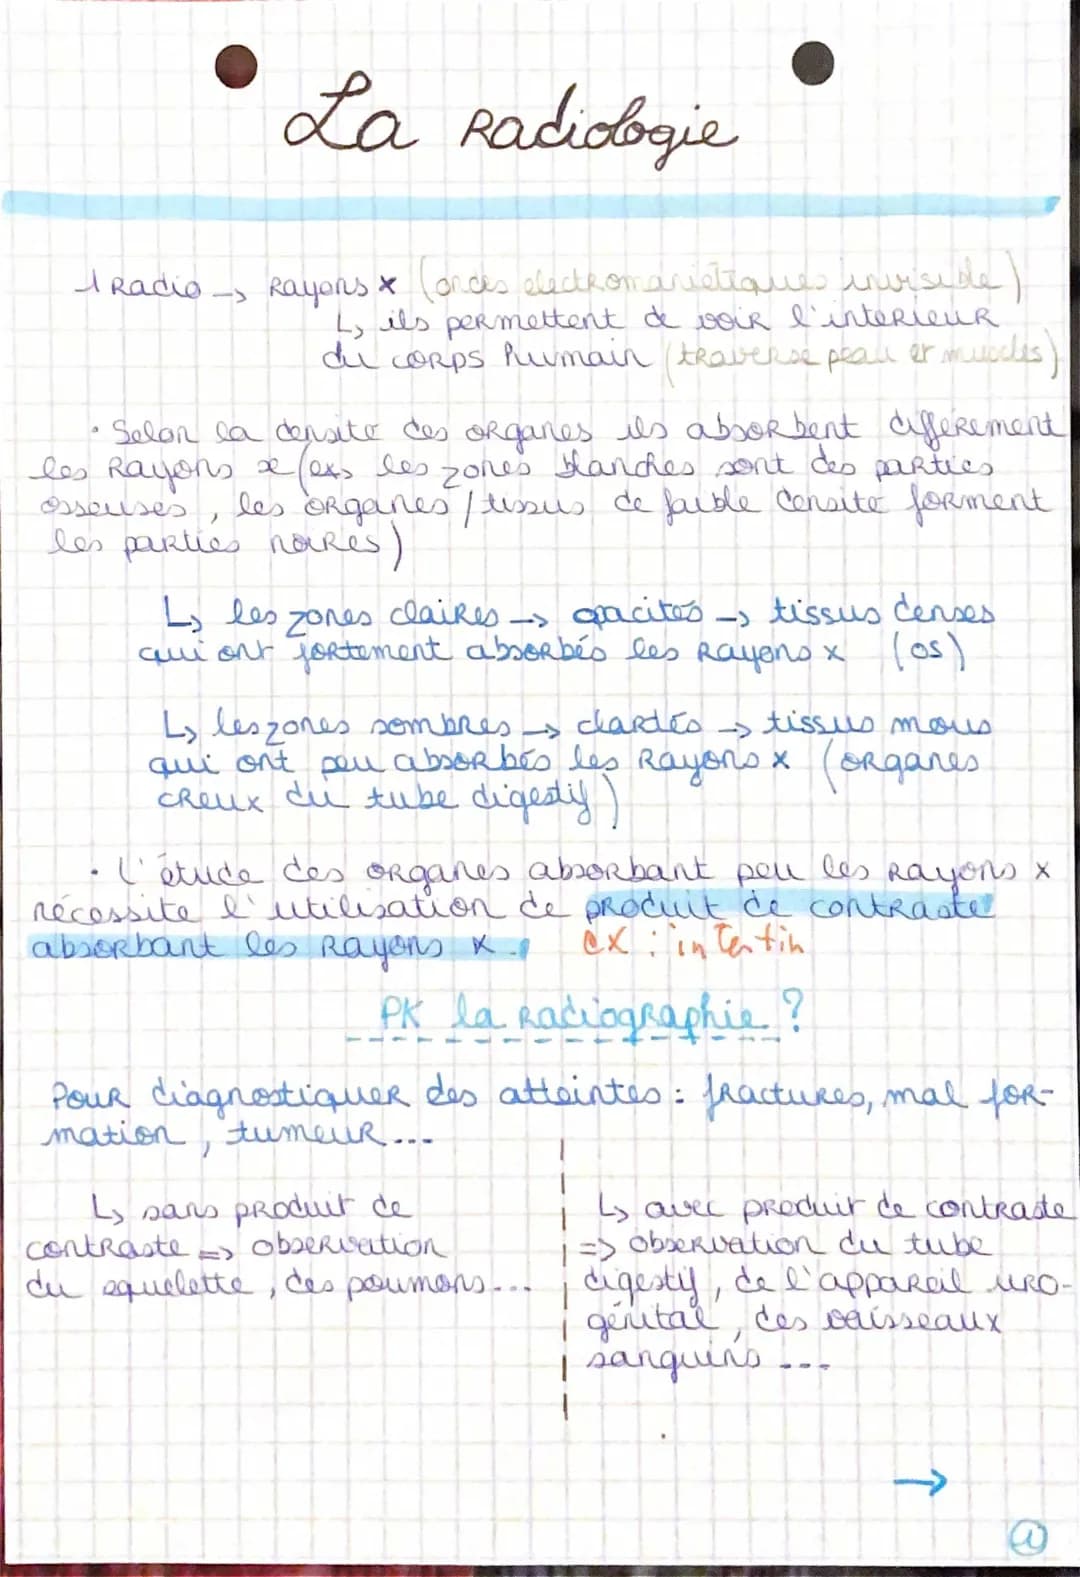 La Radiologie
1 Radio → Rayons x (ondes electromanietiques invisible)
↳ ils permettent de voir l'interieur
du corps humain (traverse peau et muscles)
• Selon la densité des organes ils absorbent differement
les Rayons x (ex, les zones blanches sont des parties
osseuses, les organes / tissus de faible densité forment
les parties noires)
↳ les zones claires → opacités → tissus denses
qui ont fortement absorbés les Rayons x (os)
↳ les zones sombres → clardés → tissus mous
qui ont peu absorbés les Rayons x (organes
creux du tube digestif)
• L'étude des organes absorbant peu les rayons x
nécessite l'utilisation de produit de contraste
absorbant les Rayons x. ex : intentin
PK la radiographie ?
Pour diagnostiquer des atteintes : fractures, mal for-
mation, tumeur...
↳ sans produit de
contraste => observation
du squelette, des poumons...
↳ avec produit de contraste
=> observation du tube
digestif, de l'appareil uro-
génital, des vaisseaux
sanguins ...
→
1